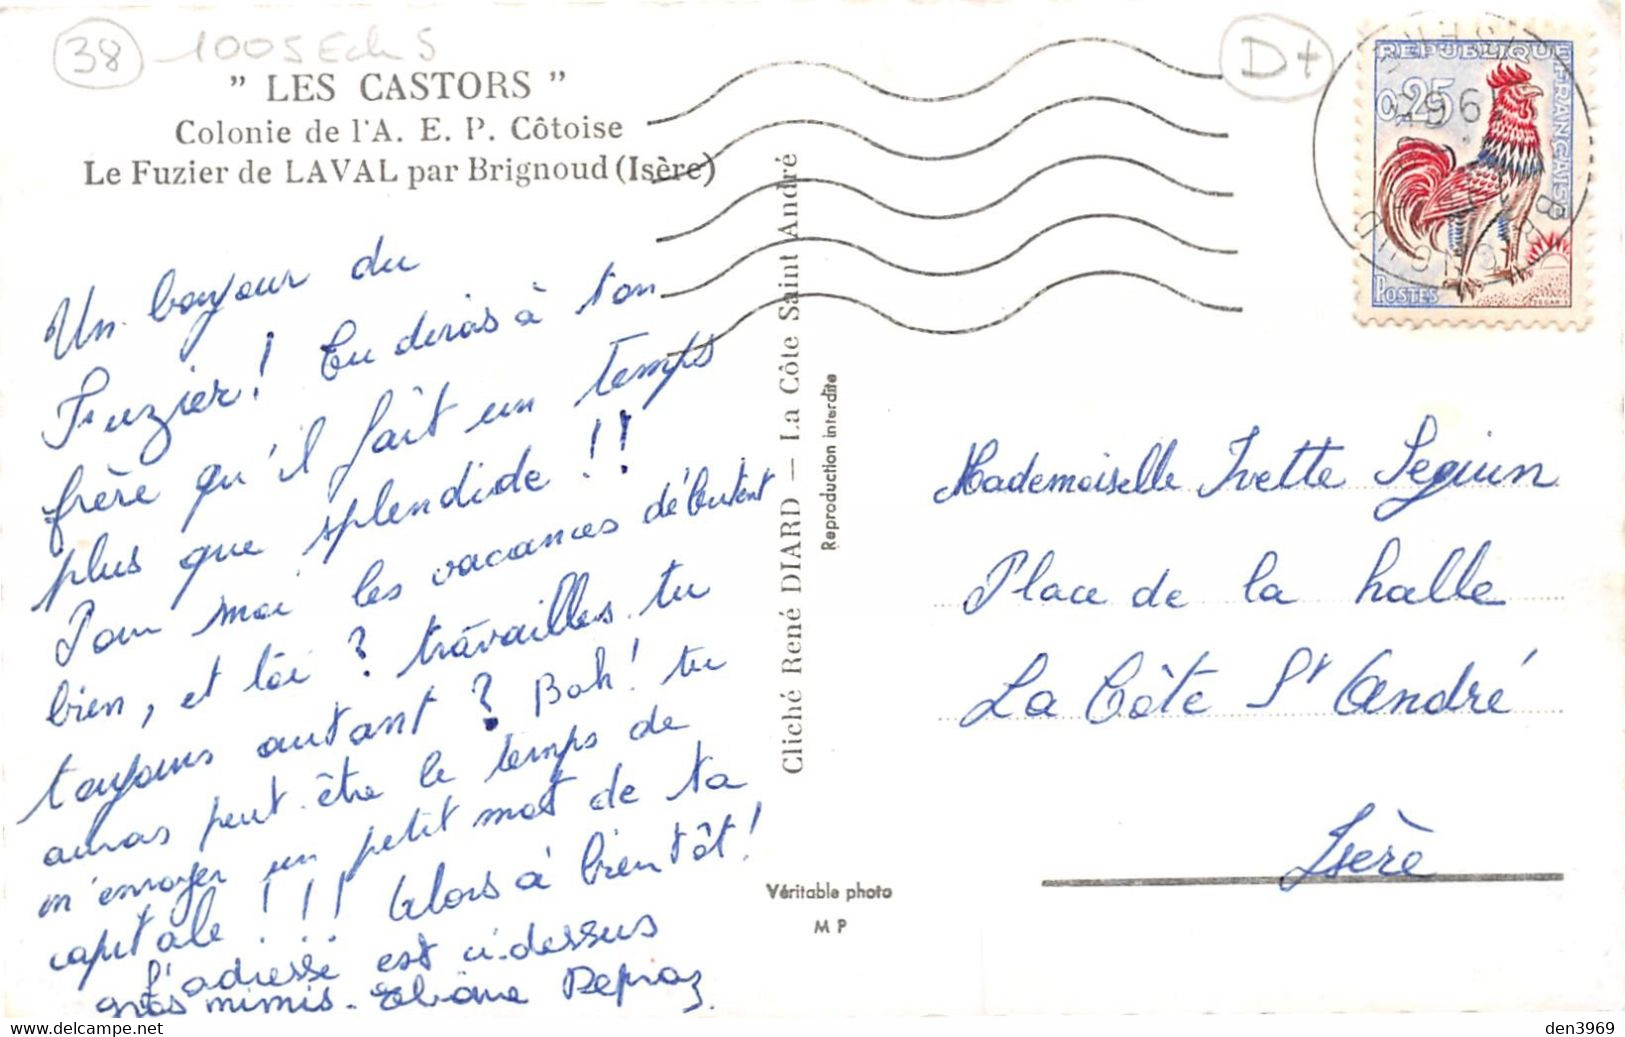 38
1005 Ech S
D+
" LES CASTORS "
Colonie de l'A. E. P. Côtoise
Le Fuzier de LAVAL par Brignoud (Isère)
REPUBLIQUE FRANÇAISE
0,25
POSTES
Un bonjour du
Fuzier! Tu diras à ton
frère qu'il fait un temps
plus que splendide!!
Pour moi les vacances débutent
bien, et toi? travailles tu
toujours autant? Bah! tu
auras peut-être le temps de
m'envoyer un petit mot de ta
capitale!!! Alors à bientôt!
L'adresse est ci-dessus
gros mimis. Eliane Depraz.
Cliché René DIARD — La Côte Saint André
Reproduction interdite
Véritable photo
M P
Mademoiselle Ivette Seguin
Place de la halle
La Côte St André
Isère
den3969